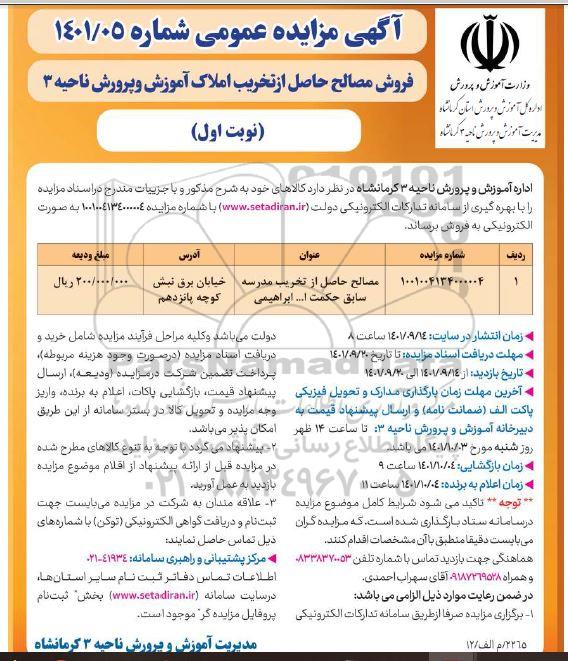 آگهی مزایده عمومی شماره ۱۴۰۱/۰۵
فروش مصالح حاصل ازتخریب املاک آموزش وپرورش ناحیه ۳
(نوبت اول)
وزارت آموزش و پرورش
اداره کل آموزش و پرورش استان کرمانشاه
مدیریت آموزش و پرورش ناحیه ۳ کرمانشاه
اداره آموزش و پرورش ناحیه ۳ کرمانشاه در نظر دارد کالاهای خود به شرح مذکور و با جزییات مندرج دراسناد مزایده
را با بهره گیری از سامانه تدارکات الکترونیکی دولت (www.setadiran.ir) با شماره مزایده ۱۰۰۱۰۰۴۱۳۴۰۰۰۰۰۴ به صورت
الکترونیکی به فروش برساند.
ردیف شماره مزایده عنوان آدرس مبلغ ودیعه
۱ ۱۰۰۱۰۰۴۱۳۴۰۰۰۰۰۴ مصالح حاصل از تخریب مدرسه خیابان برق نبش ۲۰۰/۰۰۰/۰۰۰ ریال
سابق حکمت ا... ابراهیمی کوچه پانزدهم
زمان انتشار در سایت: ۱۴۰۱/۰۹/۱۴ ساعت ۸
مهلت دریافت اسناد مزایده: تا تاریخ ۱۴۰۱/۰۹/۲۰
تاریخ بازدید: از ۱۴۰۱/۰۹/۱۴ الی ۱۴۰۱/۰۹/۲۰
آخرین مهلت زمان بارگذاری مدارک و تحویل فیزیکی
پاکت الف (ضمانت نامه) و ارسال پیشنهاد قیمت به
دبیرخانه آموزش و پرورش ناحیه ۳: تا ساعت ۱۴ ظهر
روز شنبه مورخ ۱۴۰۱/۱۰/۰۳ می باشد.
زمان بازگشایی: ۱۴۰۱/۱۰/۰۴ ساعت ۹
زمان اعلام به برنده: ۱۴۰۱/۱۰/۰۴ ساعت ۱۱
** توجه ** تاکید می شود شرایط کامل موضوع مزایده
درسامانه ستاد بارگذاری شده است. که مزایده گران
می بایست دقیقا منطبق با آن مشخصات اقدام کنند.
هماهنگی جهت بازدید تماس با شماره تلفن ۰۸۳۳۸۳۷۰۰۵۳
و همراه ۰۹۱۸۷۲۶۹۵۲۸ آقای سهراب احمدی.
در ضمن رعایت موارد ذیل الزامی می باشد:
۱- برگزاری مزایده صرفا ازطریق سامانه تدارکات الکترونیکی
دولت می باشد وکلیه مراحل فرآیند مزایده شامل خرید و
دریافت اسناد مزایده (درصورت وجود هزینه مربوطه)،
پرداخت تضمین شرکت درمزایده (ودیعه)، ارسال
پیشنهاد قیمت، بازگشایی پاکات، اعلام به برنده، واریز
وجه مزایده و تحویل کالا در بستر سامانه از این طریق
امکان پذیر می باشد.
۲- پیشنهاد می گردد با توجه به تنوع کالاهای مطرح شده
در مزایده قبل از ارائه پیشنهاد از اقلام موضوع مزایده
بازدید به عمل آورید.
۳- علاقه مندان به شرکت در مزایده می بایست جهت
ثبت نام و دریافت گواهی الکترونیکی (توکن) با شماره های
ذیل تماس حاصل نمایند:
مرکز پشتیبانی و راهبری سامانه: ۴۱۹۳۴-۰۲۱
اطلاعات تماس دفاتر ثبت نام سایر استان ها،
درسایت سامانه (www.setadiran.ir) بخش" ثبت نام
پروفایل مزایده گر" موجود است.
۲۲۶۵/م الف/۱۲
مدیریت آموزش و پرورش ناحیه ۳ کرمانشاه